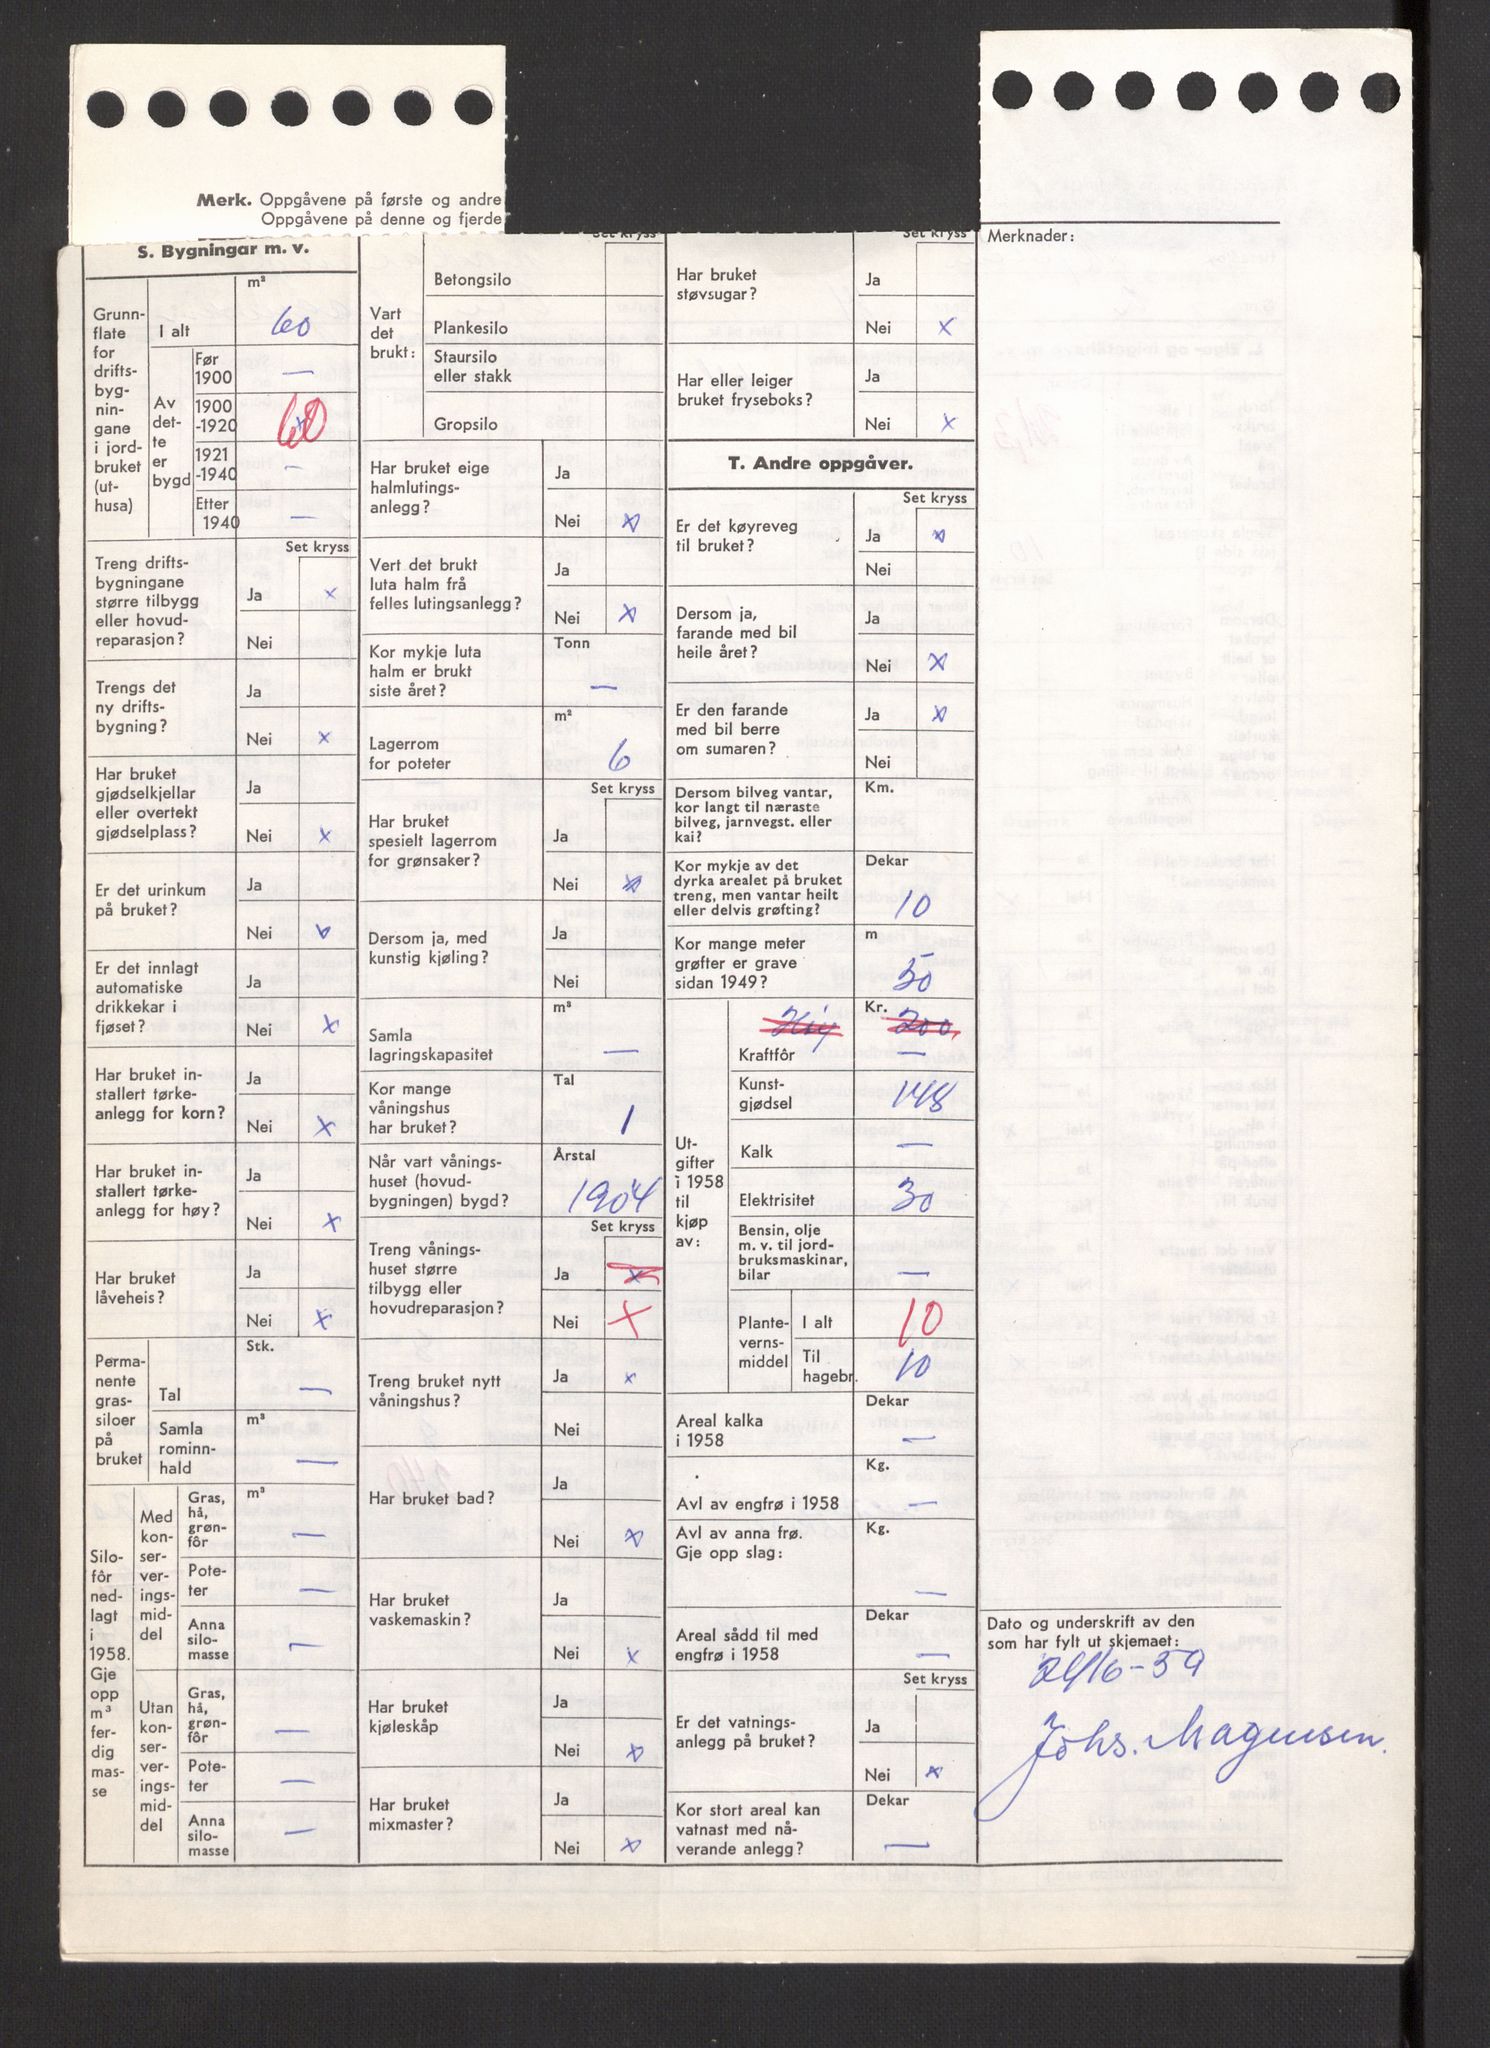 Merk. Oppgåvene på første og andre
Oppgåvene på denne og fjerde
S. Bygningar m. v.
m²
Grunn-
flate
for
drifts-
byg-
nin-
gane
i jord-
bruket
(ut-
husa)
I alt
60
Av
det-
te
er
bygd
Før
1900
—
1900
-1920
60
1921
-1940
—
Etter
1940
—
Set kryss
Treng drifts-
bygningane
større tilbygg
eller hovud-
reparasjon?
Ja x
Nei
Trengs det
ny drifts-
bygning?
Ja
Nei x
Har bruket
gjødselkjellar
eller overtekt
gjødselplass?
Ja
Nei x
Er det urinkum
på bruket?
Ja
Nei x
Er det innlagt
automatiske
drikkekar i
fjøset?
Ja
Nei x
Har bruket in-
stallert tørke-
anlegg for korn?
Ja
Nei x
Har bruket in-
stallert tørke-
anlegg for høy?
Ja
Nei x
Har bruket
låveheis?
Ja
Nei x
Perma-
nente
gras-
siloer
på
bruket
Stk.
Tal —
m³
Samla
rominn-
hald —
Silo-
fôr
ned-
lagt
i
1958.
Gje
opp
m³
fer-
dig
mas-
se
Med
kon-
ser-
ver-
ings-
mid-
del
m³
Gras,
hå,
grøn-
fôr —
Pote-
ter —
Anna
silo-
masse —
Utan
kon-
ser-
ver-
ings-
mid-
del
Gras,
hå,
grøn-
fôr —
Pote-
ter —
Anna
silo-
masse —
Set kryss
Vart
det
brukt:
Betongsilo
Plankesilo
Staursilo
eller stakk
Gropsilo
Har bruket eige
halmlutings-
anlegg?
Ja
Nei x
Vert det brukt
luta halm frå
felles lutingsanlegg?
Ja
Nei x
Kor mykje luta
halm er brukt
siste året?
Tonn
—
Lagerrom
for poteter
m²
6
Set kryss
Har bruket
spesielt lagerrom
for grønsaker?
Ja
Nei x
Dersom ja, med
kunstig kjøling?
Ja
Nei
Samla
lagringskapasitet
m³
—
Kor mange
våningshus
har bruket?
Tal
1
Når vart vånings-
huset (hovud-
bygningen) bygd?
Årstal
1904
Set kryss
Treng vånings-
huset større
tilbygg eller
hovudreparasjon?
Ja x
Nei x
Treng bruket nytt
våningshus?
Ja x
Nei
Har bruket bad?
Ja
Nei x
Har bruket
vaskemaskin?
Ja
Nei x
Har bruket
kjøleskåp
Ja
Nei x
Har bruket
mixmaster?
Ja
Nei x
Set kryss
Har bruket
støvsugar?
Ja
Nei x
Har eller leiger
bruket fryseboks?
Ja
Nei x
T. Andre oppgåver.
Set kryss
Er det køyreveg
til bruket?
Ja x
Nei
Dersom ja,
farande med bil
heile året?
Ja
Nei x
Er den farande
med bil berre
om sumaren?
Ja x
Nei
Dersom bilveg vantar,
kor langt til næraste
bilveg, jarnvegst. eller
kai?
Km.
Kor mykje av det
dyrka arealet på bruket
treng, men vantar heilt
eller delvis grøfting?
Dekar
10
Kor mange meter
grøfter er grave
sidan 1949?
m
50
Ut-
gifter
i 1958
til
kjøp
av:
Kr.
Høy 200,
Kraftfôr —
Kunst-
gjødsel 148
Kalk —
Elektrisitet 30
Bensin, olje
m. v. til jord-
bruksmaskinar,
bilar —
Plante-
verns-
middel
I alt 10
Til
hagebr. 10
Areal kalka
i 1958
Dekar
—
Avl av engfrø i 1958
Kg.
—
Avl av anna frø.
Gje opp slag:
Kg.
—
Areal sådd til med
engfrø i 1958
Dekar
—
Set kryss
Er det vatnings-
anlegg på bruket?
Ja
Nei x
Kor stort areal kan
vatnast med nå-
verande anlegg?
Dekar
—
Merknader:
Dato og underskrift av den
som har fylt ut skjemaet:
24/6-59
Johs. Magnussen.